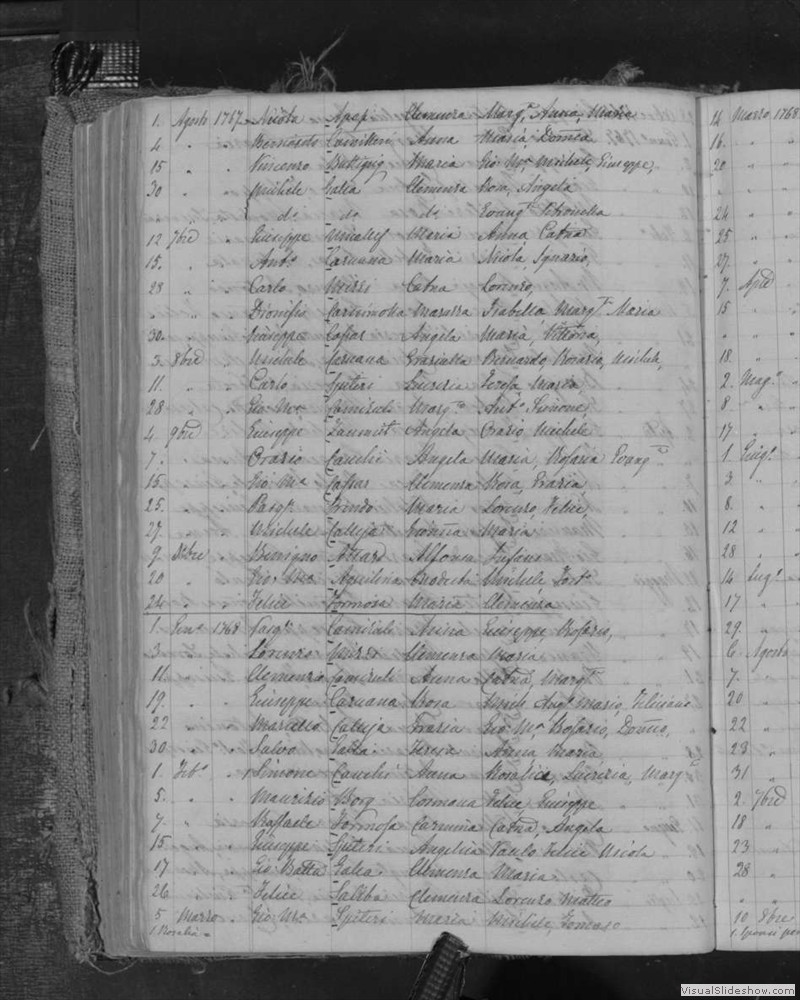 1. Agosto 1767 Nicola Apap Clemenza Marg.a Anna, Maria
4 " " Bernardo Anna Maria, Dom.ca
15 " " Vincenzo Buttigieg Maria Gio M.a Michele, Giuseppe,
30 " " Michele Galea Clemenza Rosa, Angela
do do do Evang.ta Petronella
12 7bre " Giuseppe Micallef Maria Anna Catna
15. " " Ant.o Caruana Maria Nicola, Ignazio,
28 " " Carlo Mizzi Catna Lorenzo,
" " " Dionisio Isabella Marg.ta Maria
30. " " Giuseppe Cassar Angela Maria, Vittoria,
3. 8bre " Michele Caruana Graziulla Bernardo, Rosario, Michele,
11. " " Carlo Spiteri Lucrezia Teresa Maria
28 " " Gio Ma Camizuli Marg.ta Ant.o Simone,
4 9bre " Giuseppe Zammit Angela Orazio Michele
7. " " Orazio Cauchi Angela Maria Rosaria Evang.ta
15 " " Gio M.a Cassar Clemenza Rosa, Grazia,
25. " " Pasq.e Maria Lorenzo Felice,
27. " " Michele Calleja Maria
9 Xbre " Benigno Attard Alfonsa Stefano
20 " " Gio Ma Aquilina Michele Fort.o
24 " " Felice Formosa Maria Clemenza
1. Gen.o 1768 Pasq.e Camizuli Anna Giuseppe Rosario,
3 " " Lorenzo Mizzi Clemenza Maria
11. " " Clemenzo Camizuli Anna Catna, Marg.ta
19. " " Giuseppe Caruana Rosa Mich. Ang.o Mario, Feliciano
22 " " Marcello Calleja Grazia Gio M.a Rosario, Dom.co,
30 " " Salvo Teresa Anna Maria
1. Feb.o " Simone Cauchi Anna Rosalica, Lucrezia, Marg.a
5. " " Maurizio Borg Felice Giuseppe
7 " " Raffaele Formosa Carmina Catna, Angela
15 " " Giuseppe Spiteri Angelica Paulo Felice Nicola
17 " " Gio Batta Galea Clemenza Maria
26 " " Felice Saliba Clemenza Lorenzo Matteo
5 Marzo " Gio Ma Spiteri Maria Michele, Tomaso
1. Rosalia
14 Marzo 1768
16. " "
20 " "
24 " "
25 " "
27. " "
7. Aple "
15 " "
" " "
18. " "
2. Mag.o "
8 " "
17 " "
1. Giug.o
3. "
8. "
12 "
28 "
14 Lug.o "
17 "
29. "
6 Agosto
7. "
20 "
22 "
28 "
31 "
2. 7bre
18 "
23 "
28 "
" "
10 8bre
VisualSlideshow.com